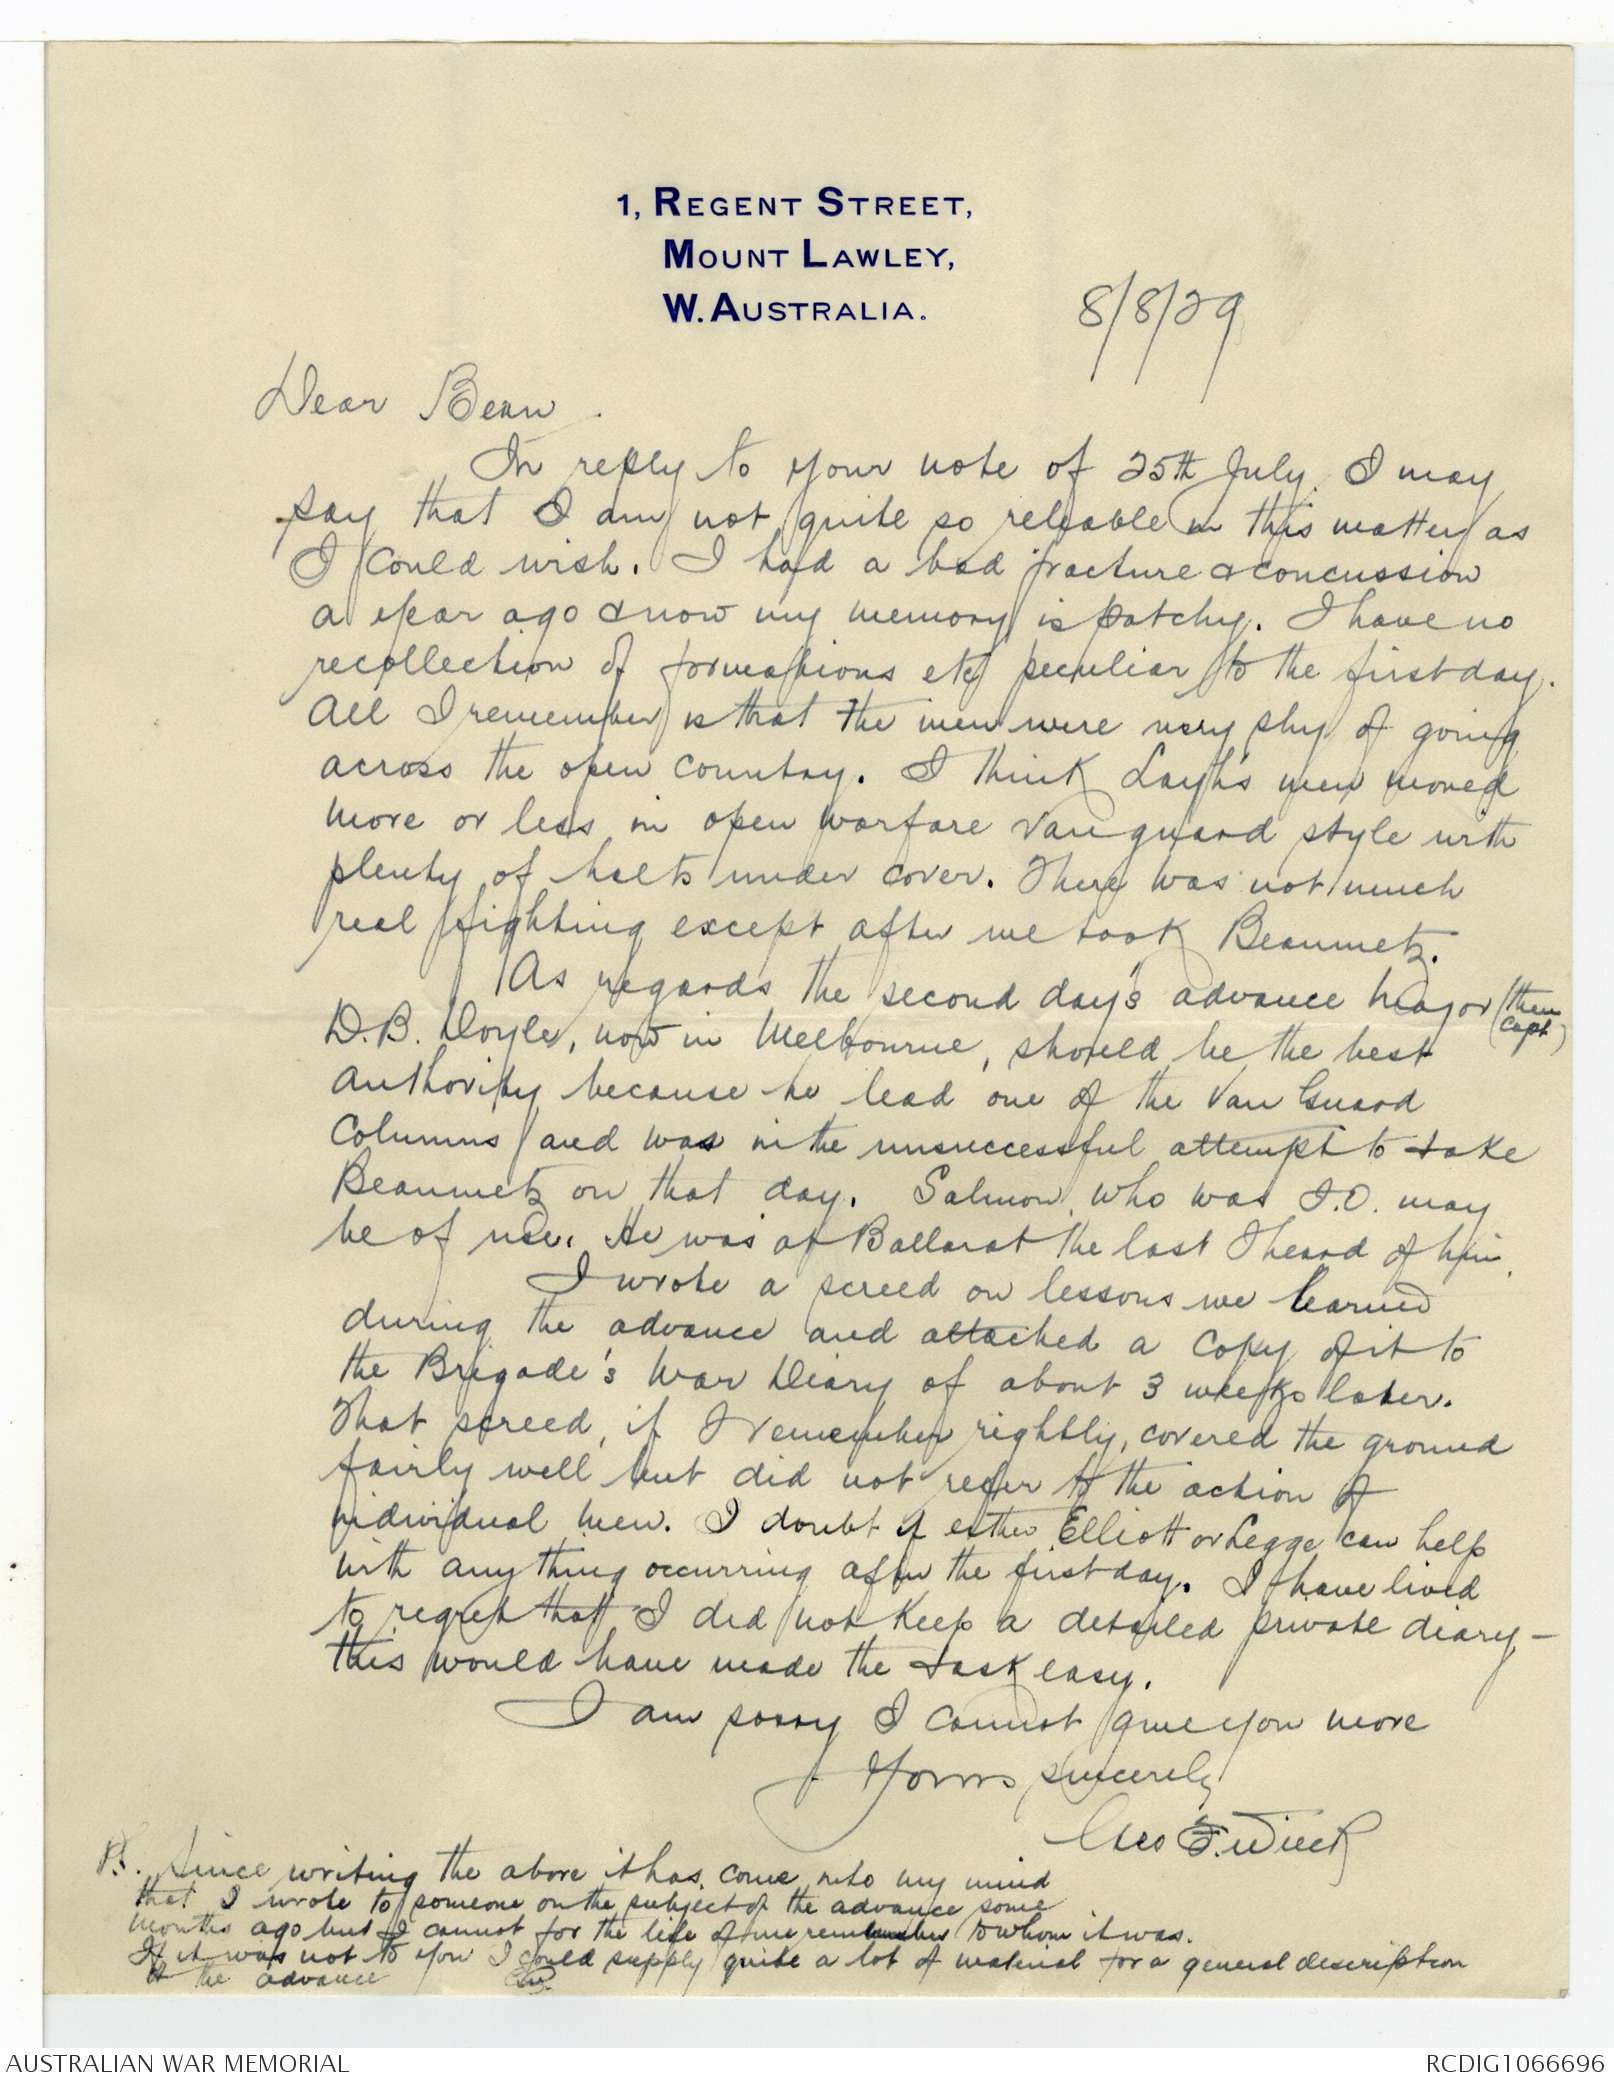 1, REGENT STREET,
MOUNT LAWLEY,
W. AUSTRALIA.
8/8/29
Dear Bean.
In reply to your note of 25th July, I may
say that I am not quite so reliable in this matter as
I could wish. I had a bad fracture & concussion
a year ago & now my memory is patchy. I have no
recollection of formations etc peculiar to the first day.
All I remember is that the men were very shy of going
across the open country. I think Layh's men moved
more or less in open warfare vanguard style with
plenty of halts under cover. There was not much
real fighting except after we took Beaumetz.
As regards the second day's advance Major (then
Capt)
D.B. Doyle, now in Melbourne, should be the best
authority because he lead one of the Van Guard
Columns and was in the unsuccessful attempt to take
Beaumetz on that day. Salmon, who was I.O. may
be of use. He was at Ballarat the last I heard of him.
I wrote a screed on lessons we learned
during the advance and attached a copy of it to
the Brigade's War Diary of about 3 weeks later.
That screed, if I remember rightly, covered the ground
fairly well but did not refer to the action of
individual men. I doubt if either Elliott or Legge can help
with anything occurring after the first day. I have lived
to regret that I did not keep a detailed private diary -
this would have made the task easy.
I am sorry I cannot give you more
Yours sincerely
Geo F. Wieck
PS. Since writing the above it has come into my mind
that I wrote to someone on the subject of the advance some
months ago but I cannot for the life of me remember to whom it was.
If it was not to you I could supply quite a lot of material for a general description
of the advance
AUSTRALIAN WAR MEMORIAL
RCDIG1066696